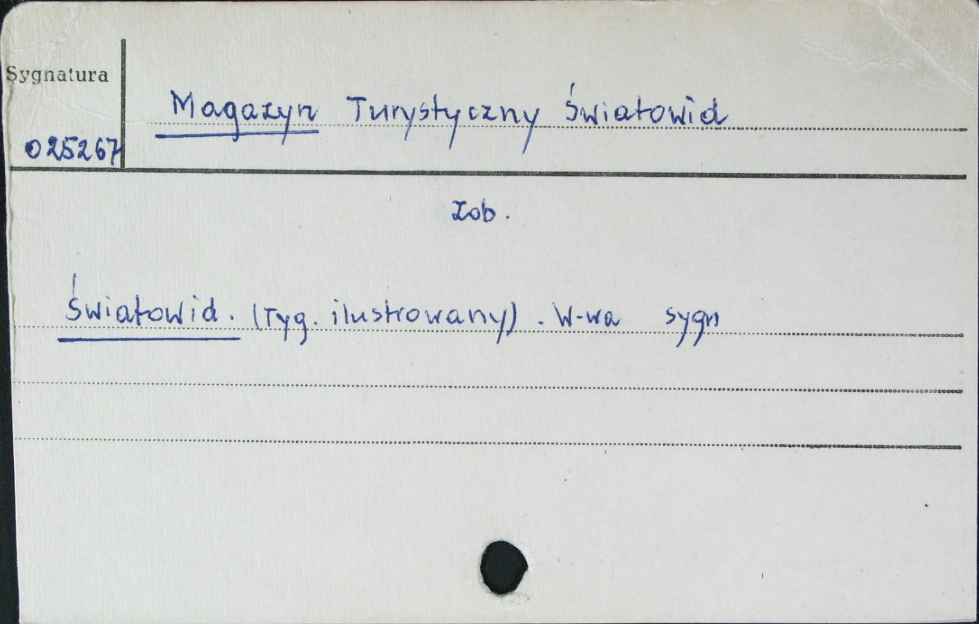 Sygnatura
Magazyn Turystyczny Światowid
025267
Zob.
Światowid. (Tyg. ilustrowany). W-wa sygn